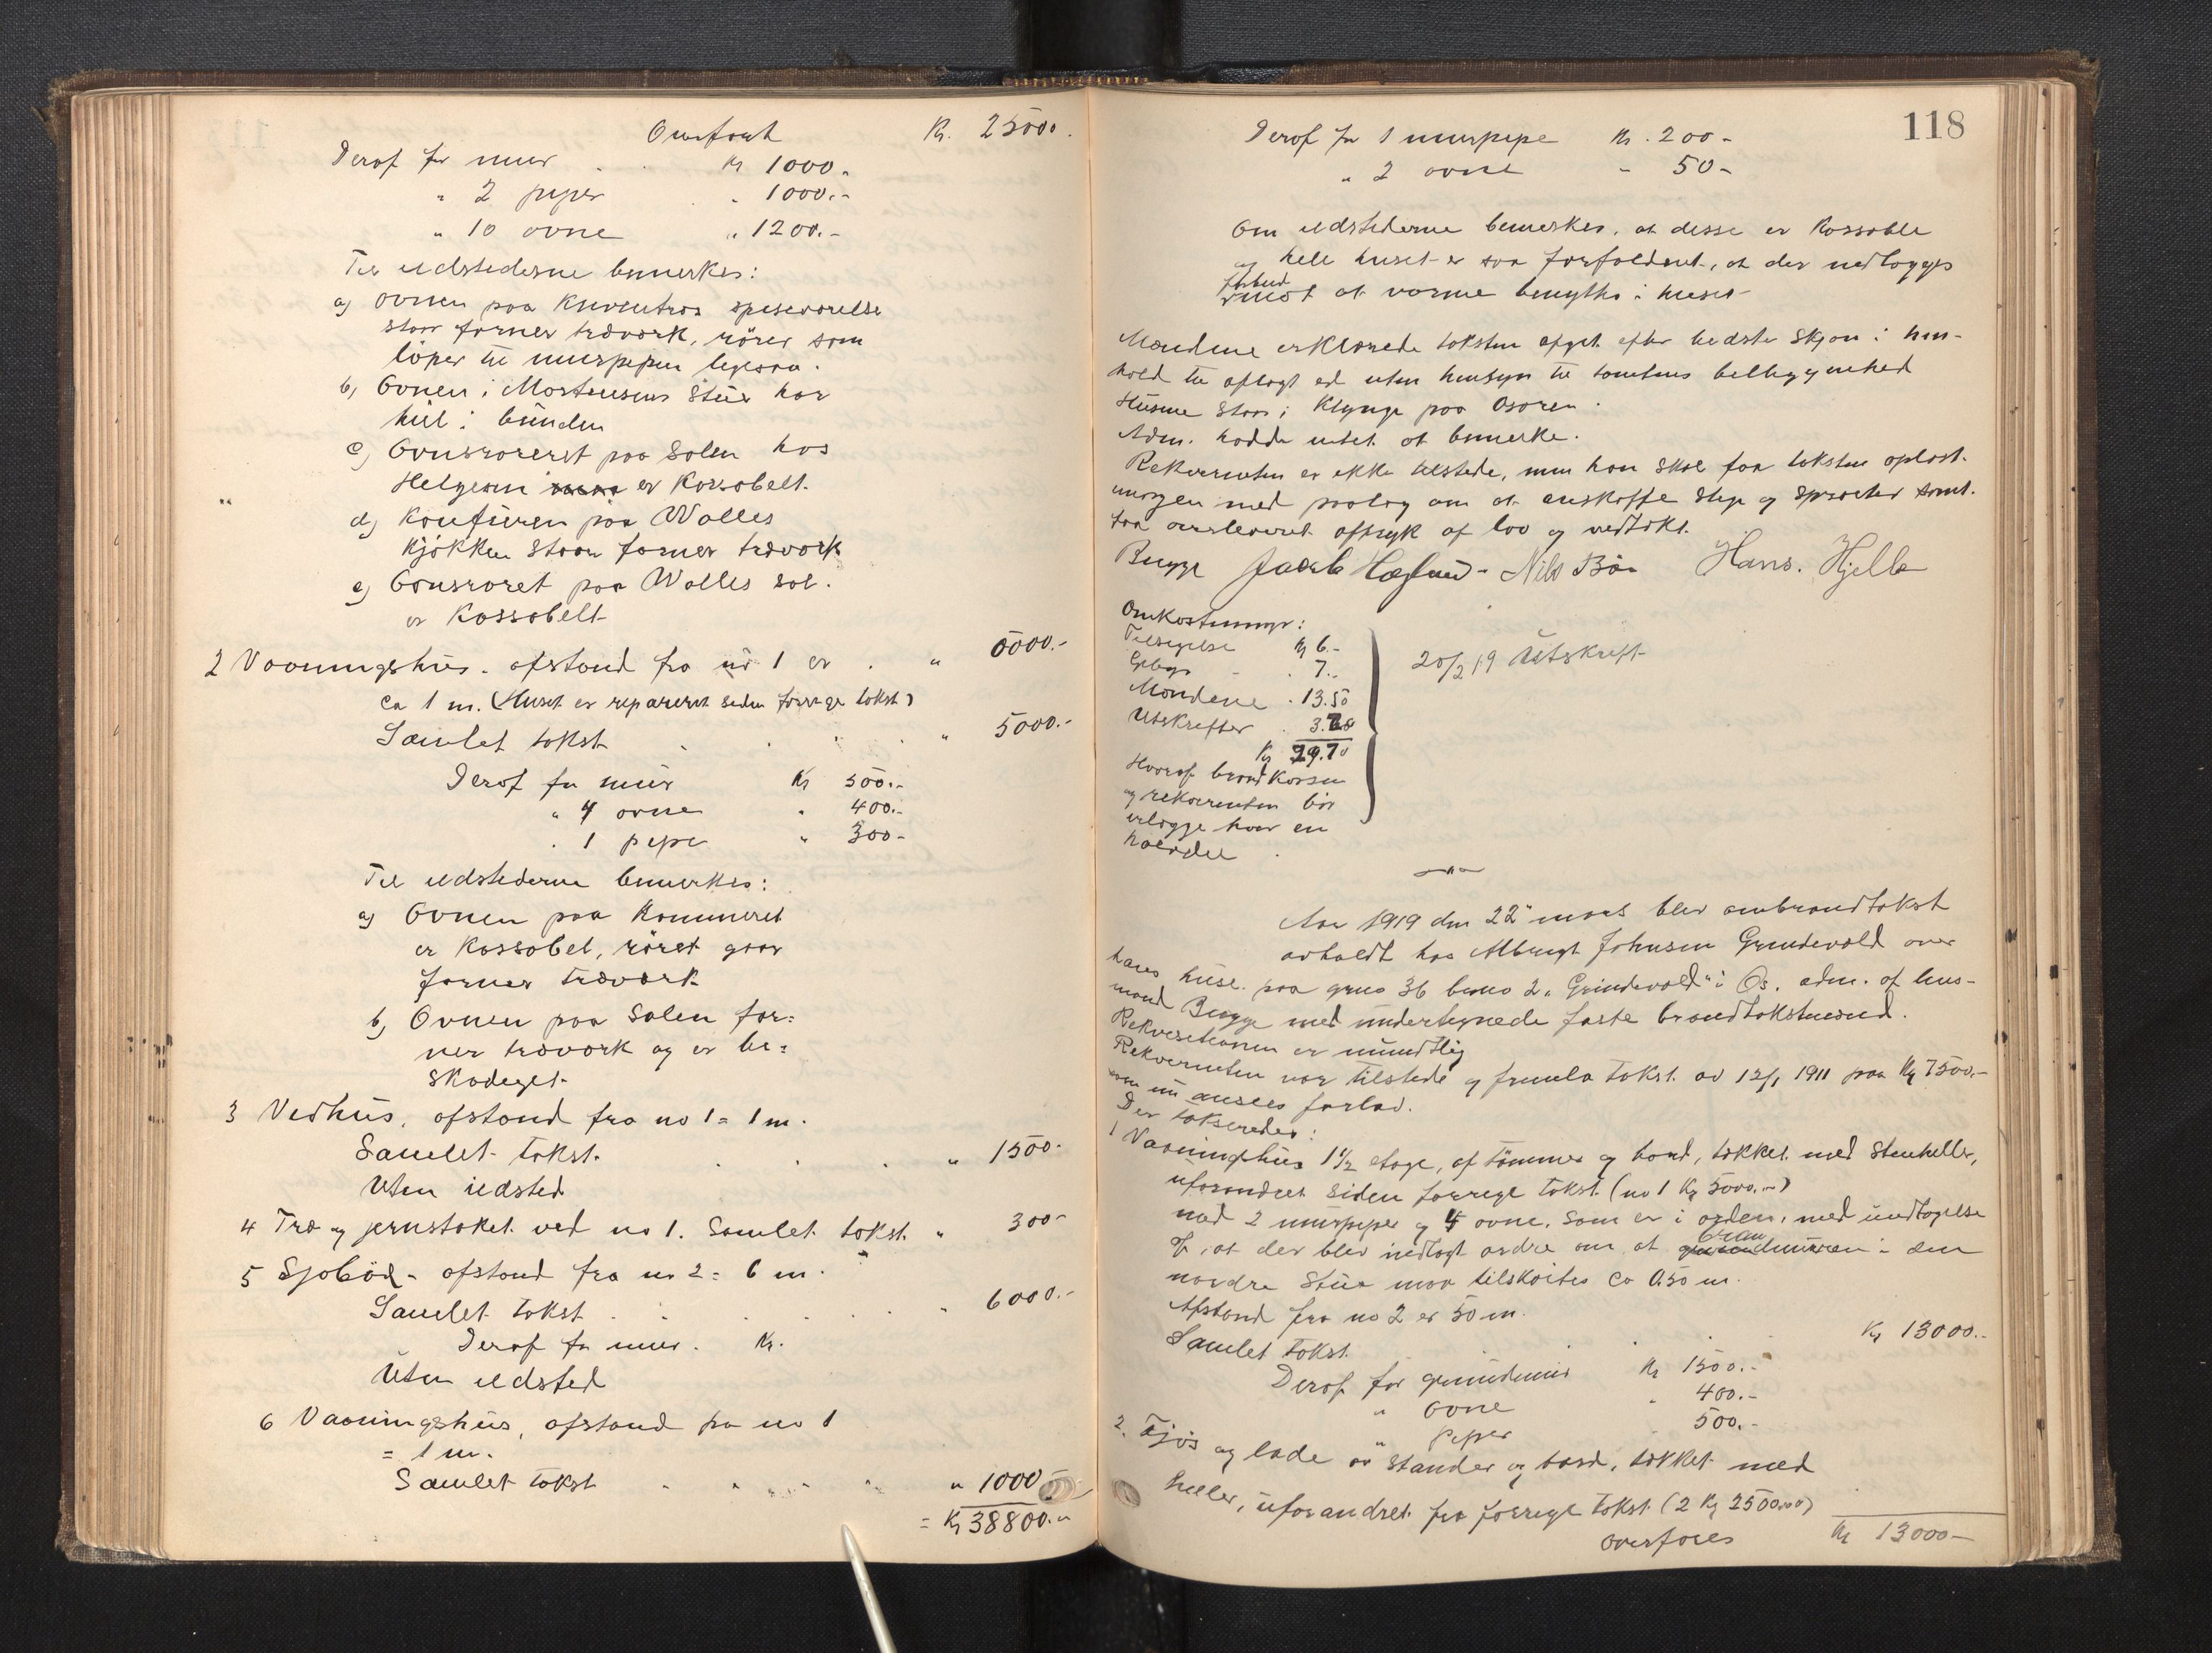 Overført Kr. 25000.
Derof for mur Kr 1000.
" 2 piper " 1000.-
" 10 ovne " 1200.-
Til ildstederne bemerkes:
a) Ovnen paa spiseværelse
staar for nær træværk, rører som
löper til murpipen ligesaa.
b, Ovnen i Mortensens Stue har
hul i bunden
c) Ovnsröret paa Salen hos
er Kassabelt.
d) Komfuren paa Walles
Kjökken staar for nær træværk
e) Ovnsröret paa Walles sal.
er Kassabelt
2 Vaaningshus. afstand fra no 1 er . " 0000.-
ca 1 m. (Huset er reparert siden forrige takst)
Samlet takst " 5000.-
Derof for mur Kr 500.-
" 4 ovne " 400.-
. 1 pipe " 300-
Til ildstederne bemerkes:
a) Ovnen paa Kammeret
er Kassabel, röret gaar
for nær træværk
b, Ovnen paa Salen for=
nær træværk og er be=
skadeget.
3 Vedhus, afstand fra no 1 = 1 m.
Samlet takst. " 1500-
Uten ildsted
4 Træ og jernstaket ved no 1. Samlet takst. " 300-
5 Sjøbod - afstand fra no 2 = 6 m.
Samlet takst . " 6000.-
Derof for mur. Kr.
Uten ildsted
6 Vaaningshus, afstand fra no 1
= 1 m.
Samlet takst " 1000-
= Kr 38800.-
118
Derof for 1 murpipe Kr. 200-
" 2 ovne " 50-
Om ildstederne bemerkes, at disse er Kassable
og hele huset er saa forfaldent, at der nedlægges
forbud
mot at varme benyttes i huset
Mændene erklærede taksten afgit efter bedste Skjøn i hen-
hold til aflagt ed uten hensyn til tomtens beliggenhed
Husene staar i Klynge paa Osøren.
Adm. hadde intet at bemerke.
Rekvirenten er ikke tilstede, men han skal faa taksten oplæst
imorgen med paalæg om at anskaffe Stige og Sprøiter samt.
faa overleveret aftryk af lov og vedtækt.
Bugge Jacob Hegland - Nils Bö Hans. Hjelle
Omkostninger:
Tilsigelse Kr 6.-
7.-
Mændene . 13.50
Utskrifter . 3.20
Kr 29.70
Hvoraf brandkassen
og rekvirenten bör
utlægge hver en
halvdel
20/2 19 Utskrift
Aar 1919 den 22" mars blev ombrandtakst
avholdt hos Albrigt Johnsen Grindevold over
hans huse paa gno 36 bno 2 „Grindevold" i Os. adm. af lens-
mand Bugge med undertegnede faste brandtakstmænd.
Rekvisitionen er mundtlig
Rekvirenten var tilstede og fremla takst. av 12/1 1911 paa Kr 7500.-
som nu ansees for lav.
Der takseredes:
1 Vaaningshus 1 1/2 etage, af tömmer og bord, tækket med Stenheller,
uforandret siden forrige takst. (no 1 Kr 5000.-)
med 2 murpiper og 4 ovne, som er i orden, med undtagelse
af, at der blev nedlagt ordre om at brandmuren i den
nordre Stue maa tilskötes ca 0.50 m.
Afstand fra no 2 er 50 m.
Samlet takst. Kr 13000.-
Derof for grundmur Kr 1500.-
" Ovne " 400.-
" Piper 500.-
2. Fjös og lade av Stander og bord, tækket med
heller, uforandret fra forrige takst (2 Kr 2500.00)
overföres Kr 13000-